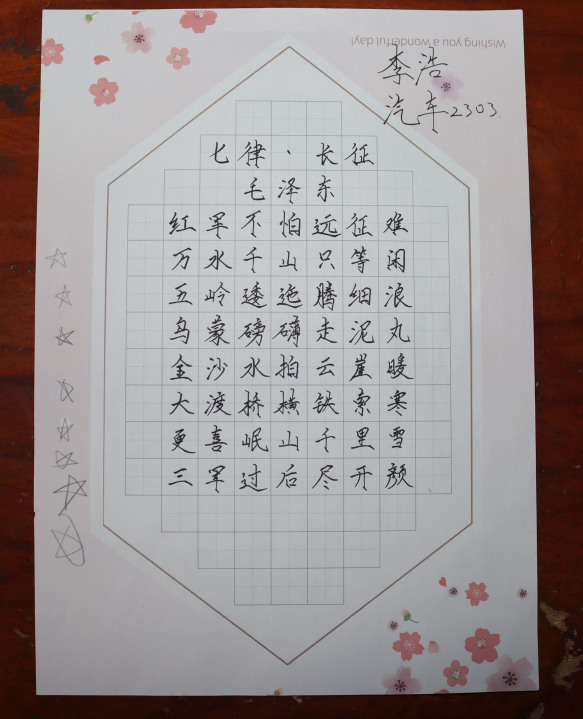 Wishing you a wonderful day!
李浩
汽车2303.
七律·长征
毛泽东
红军不怕远征难
万水千山只等闲
五岭逶迤腾细浪
乌蒙磅礴走泥丸
金沙水拍云崖暖
大渡桥横铁索寒
更喜岷山千里雪
三军过后尽开颜